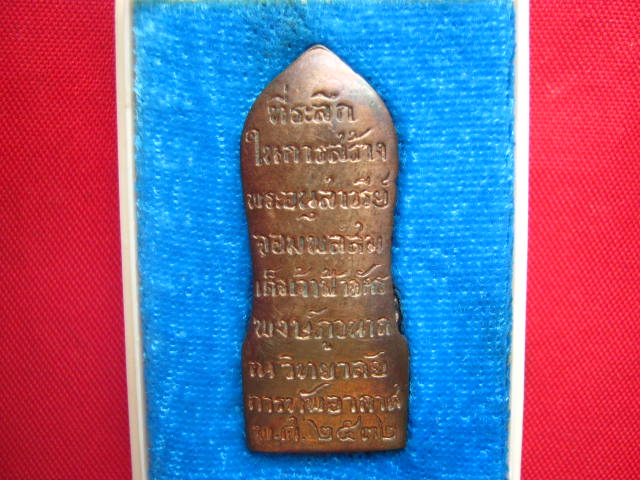 ที่ระลึก
ในการสร้าง
พระอนุสาวรีย์
จอมพลสม
เด็จเจ้าฟ้าจักร
พงษ์ภูวนาถ
ณ วิทยาลัย
การทัพอากาศ
พ.ศ. ๒๕๓๒